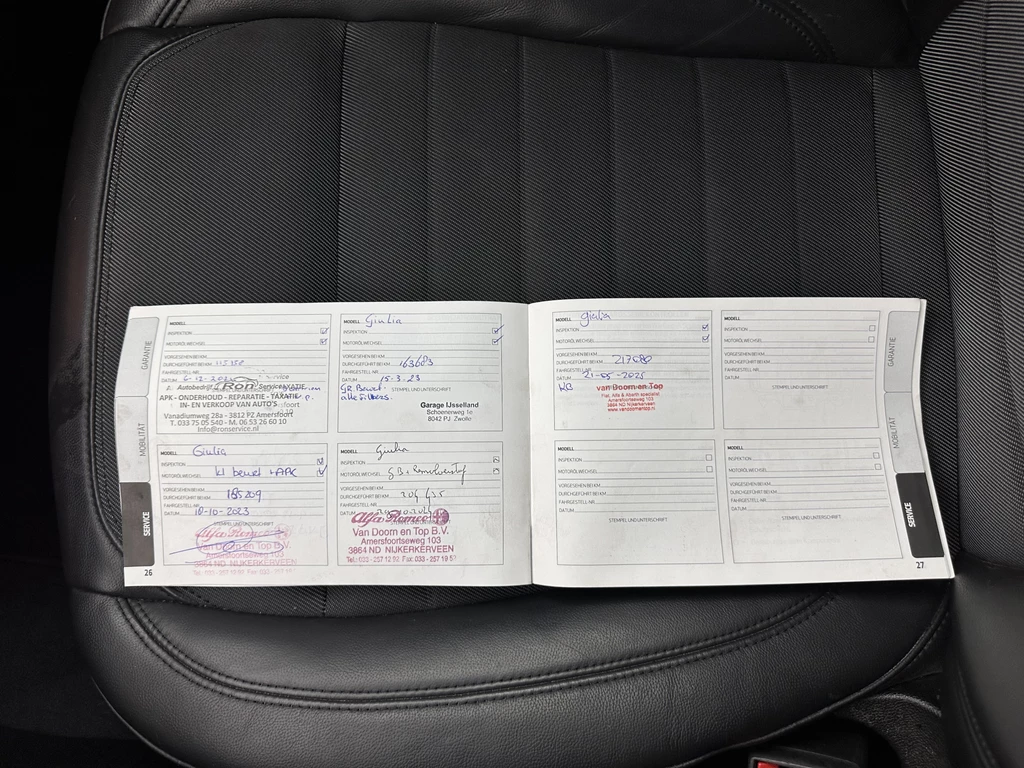 GARANTIE
MOBILITÄT
SERVICE
MODELL
INSPEKTION
MOTORÖLWECHSEL
VORGESEHEN BEI KM
DURCHGEFÜHRT BEI KM
FAHRGESTELL NR.
DATUM
Autobedrijf Ron Service
APK - ONDERHOUD - REPARATIE - TAXATIE
IN- EN VERKOOP VAN AUTO'S
Vanadiumweg 28a - 3812 PZ Amersfoort
T. 033 75 05 540 - M. 06 53 26 60 10
info@ronservice.nl
MODELL Giulia
INSPEKTION
MOTORÖLWECHSEL
VORGESEHEN BEI KM
DURCHGEFÜHRT BEI KM 163683
FAHRGESTELL NR.
DATUM 15-3-23
STEMPEL UND UNTERSCHRIFT
Garage IJsselland
Schoenerweg
8042 PJ Zwolle
MODELL Giulia
INSPEKTION
MOTORÖLWECHSEL kl beurt + APK
VORGESEHEN BEI KM
DURCHGEFÜHRT BEI KM 185209
FAHRGESTELL NR.
DATUM 10-10-2023
STEMPEL UND UNTERSCHRIFT
Alfa Romeo
Van Doorn en Top B.V.
Amersfoortseweg 103
3864 ND NIJKERKERVEEN
Tel.: 033 - 257 12 92 Fax: 033 - 257 19
MODELL Giulia
INSPEKTION
MOTORÖLWECHSEL
VORGESEHEN BEI KM
DURCHGEFÜHRT BEI KM
FAHRGESTELL NR.
DATUM
Alfa Romeo
Van Doorn en Top B.V.
Amersfoortseweg 103
3864 ND NIJKERKERVEEN
Tel.: 033 - 257 12 92 Fax: 033 - 257 19 5
26
MODELL giulia
INSPEKTION
MOTORÖLWECHSEL
VORGESEHEN BEI KM
DURCHGEFÜHRT BEI KM 217680
FAHRGESTELL NR.
DATUM 21-05-2025
van Doorn en Top
Fiat, Alfa & Abarth specialist
Amersfoortseweg 103
3864 ND Nijkerkerveen
www.vandoornentop.nl
MODELL
INSPEKTION
MOTORÖLWECHSEL
VORGESEHEN BEI KM
DURCHGEFÜHRT BEI KM
FAHRGESTELL NR.
DATUM
STEMPEL UND UNTERSCHRIFT
MODELL
INSPEKTION
MOTORÖLWECHSEL
VORGESEHEN BEI KM
DURCHGEFÜHRT BEI KM
FAHRGESTELL NR.
DATUM
STEMPEL UND UNTERSCHRIFT
MODELL
INSPEKTION
MOTORÖLWECHSEL
VORGESEHEN BEI KM
DURCHGEFÜHRT BEI KM
FAHRGESTELL NR.
DATUM
STEMPEL UND UNTERSCHRIFT
GARANTIE
MOBILITÄT
SERVICE
27